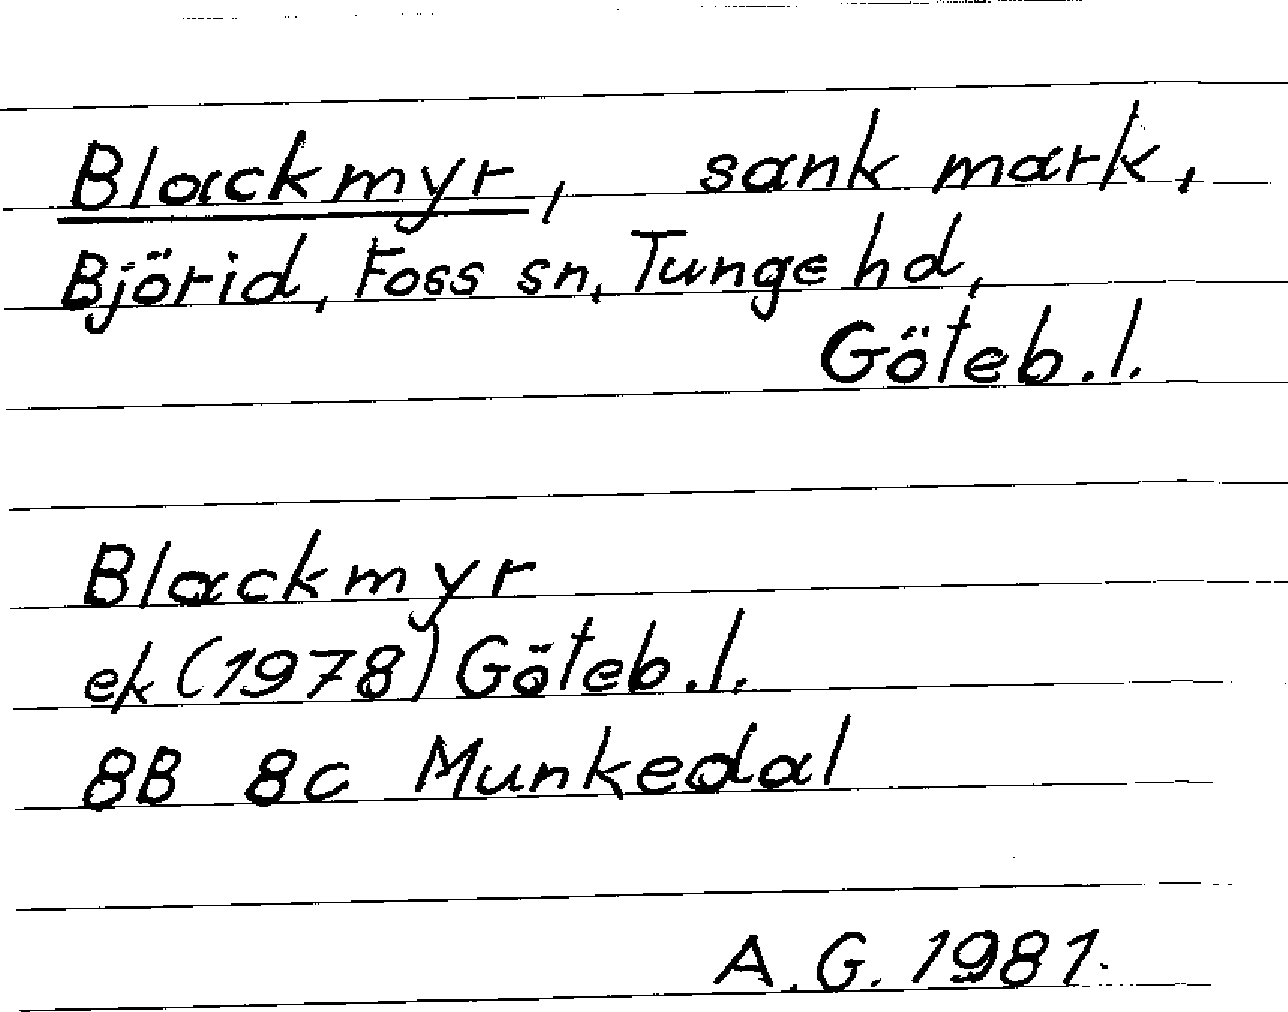 Blackmyr, sank mark,
Björid, Foss sn, Tunge hd,
Göteb.l.
Blackmyr
ek (1978) Göteb.l.
8B 8c Munkedal
A.G. 1981.